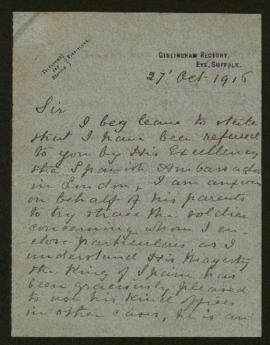 GISLINGHAM RECTORY,
EYE, SUFFOLK.
27' Oct. 1916
Sir
I beg leave to state
that I have been referred
to you by His Excellency
the Spanish Ambassador
in London, I am anxious
on behalf of his parents
to try trace the soldier
concerning whom I en-
close particulars as I
understand His Majesty
the King of Spain has
been graciously pleased
to use his kind offices
in other cases, he is an